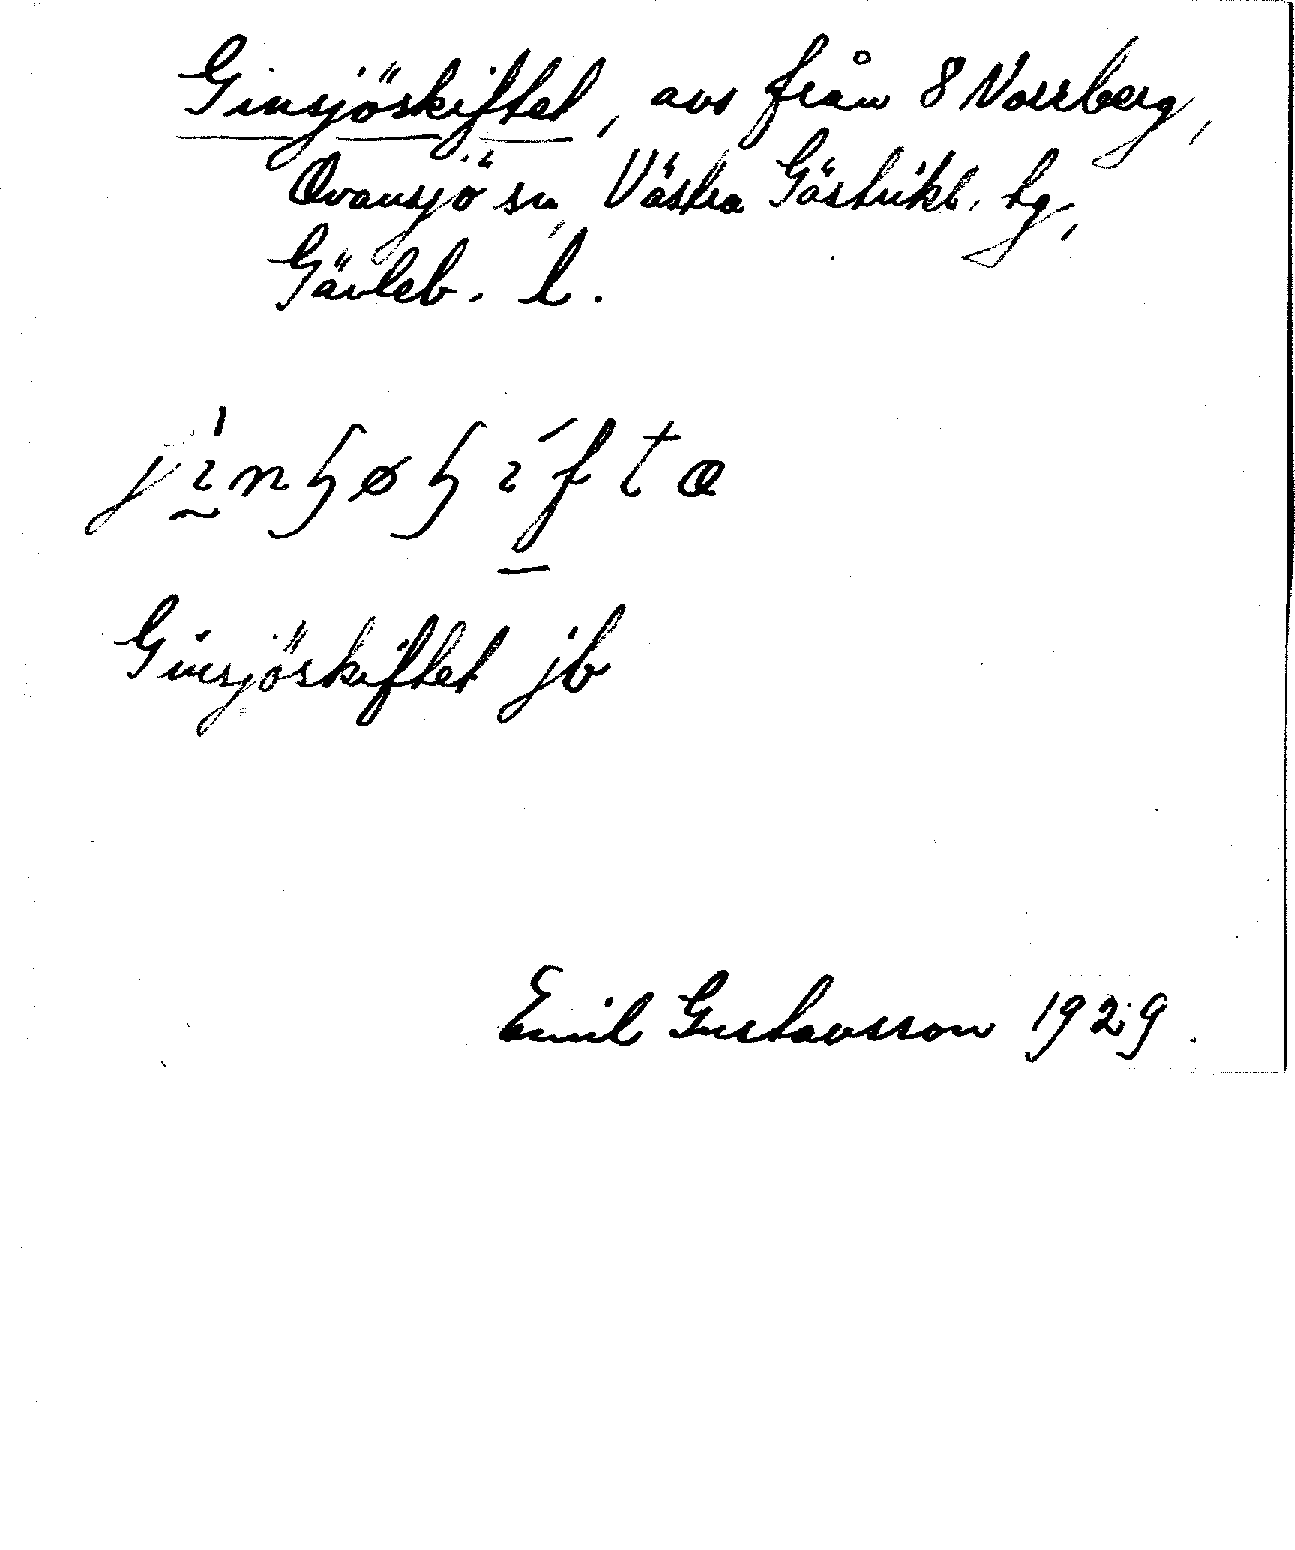 Ginsjöskiftet, avs från 8 Norrberg,
Ovansjö sn, Västra Gästrikl. tg,
Gävleb. l.
jìnꞕøꞕífta
Ginsjöskiftet jb
Emil Gustavsson 1929.